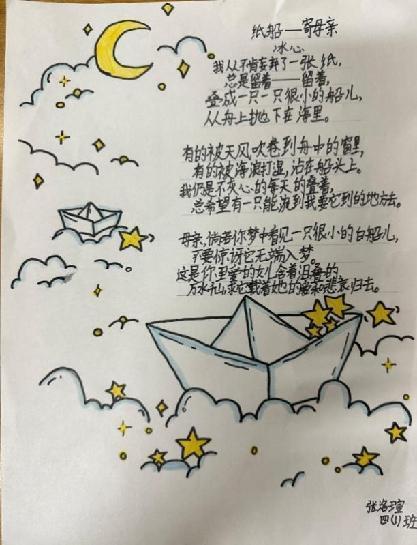 纸船——寄母亲
冰心
我从不肯妄弃了一张纸,
总是留着——留着,
叠成一只一只很小的船儿,
从舟上抛下在海里。
有的被天风吹卷到舟中的窗里,
有的被海浪打湿,沾在船头上。
我仍是不灰心的每天的叠着,
总希望有一只能流到我要它到的地方去。
母亲,倘若你梦中看见一只很小的白船儿,
不要惊讶它无端入梦。
这是你至爱的女儿含着泪叠的
万水千山求它载着她的爱和悲哀归去。
张洛瑄
四(1)班